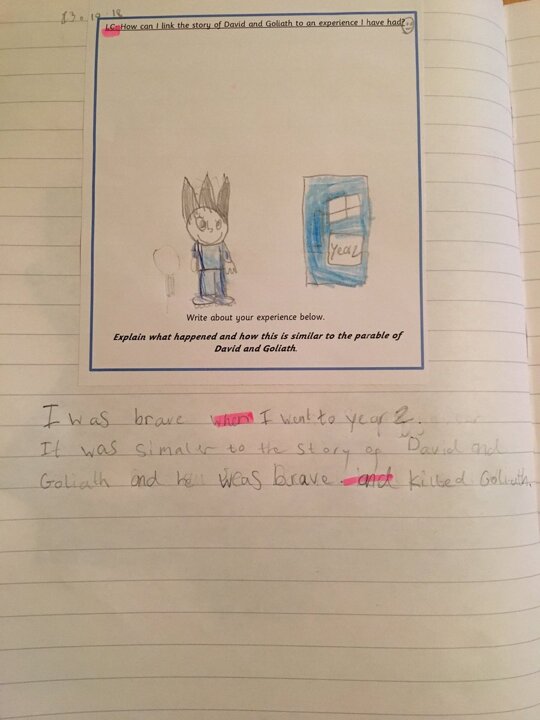 13.19.18
LC: How can I link the story of David and Goliath to an experience I have had?
Year 2
Write about your experience below.
Explain what happened and how this is similar to the parable of
David and Goliath.
I was brave when I went to year 2.
It was simaler to the story of David and
Goliath and he was brave and killed Goliath.